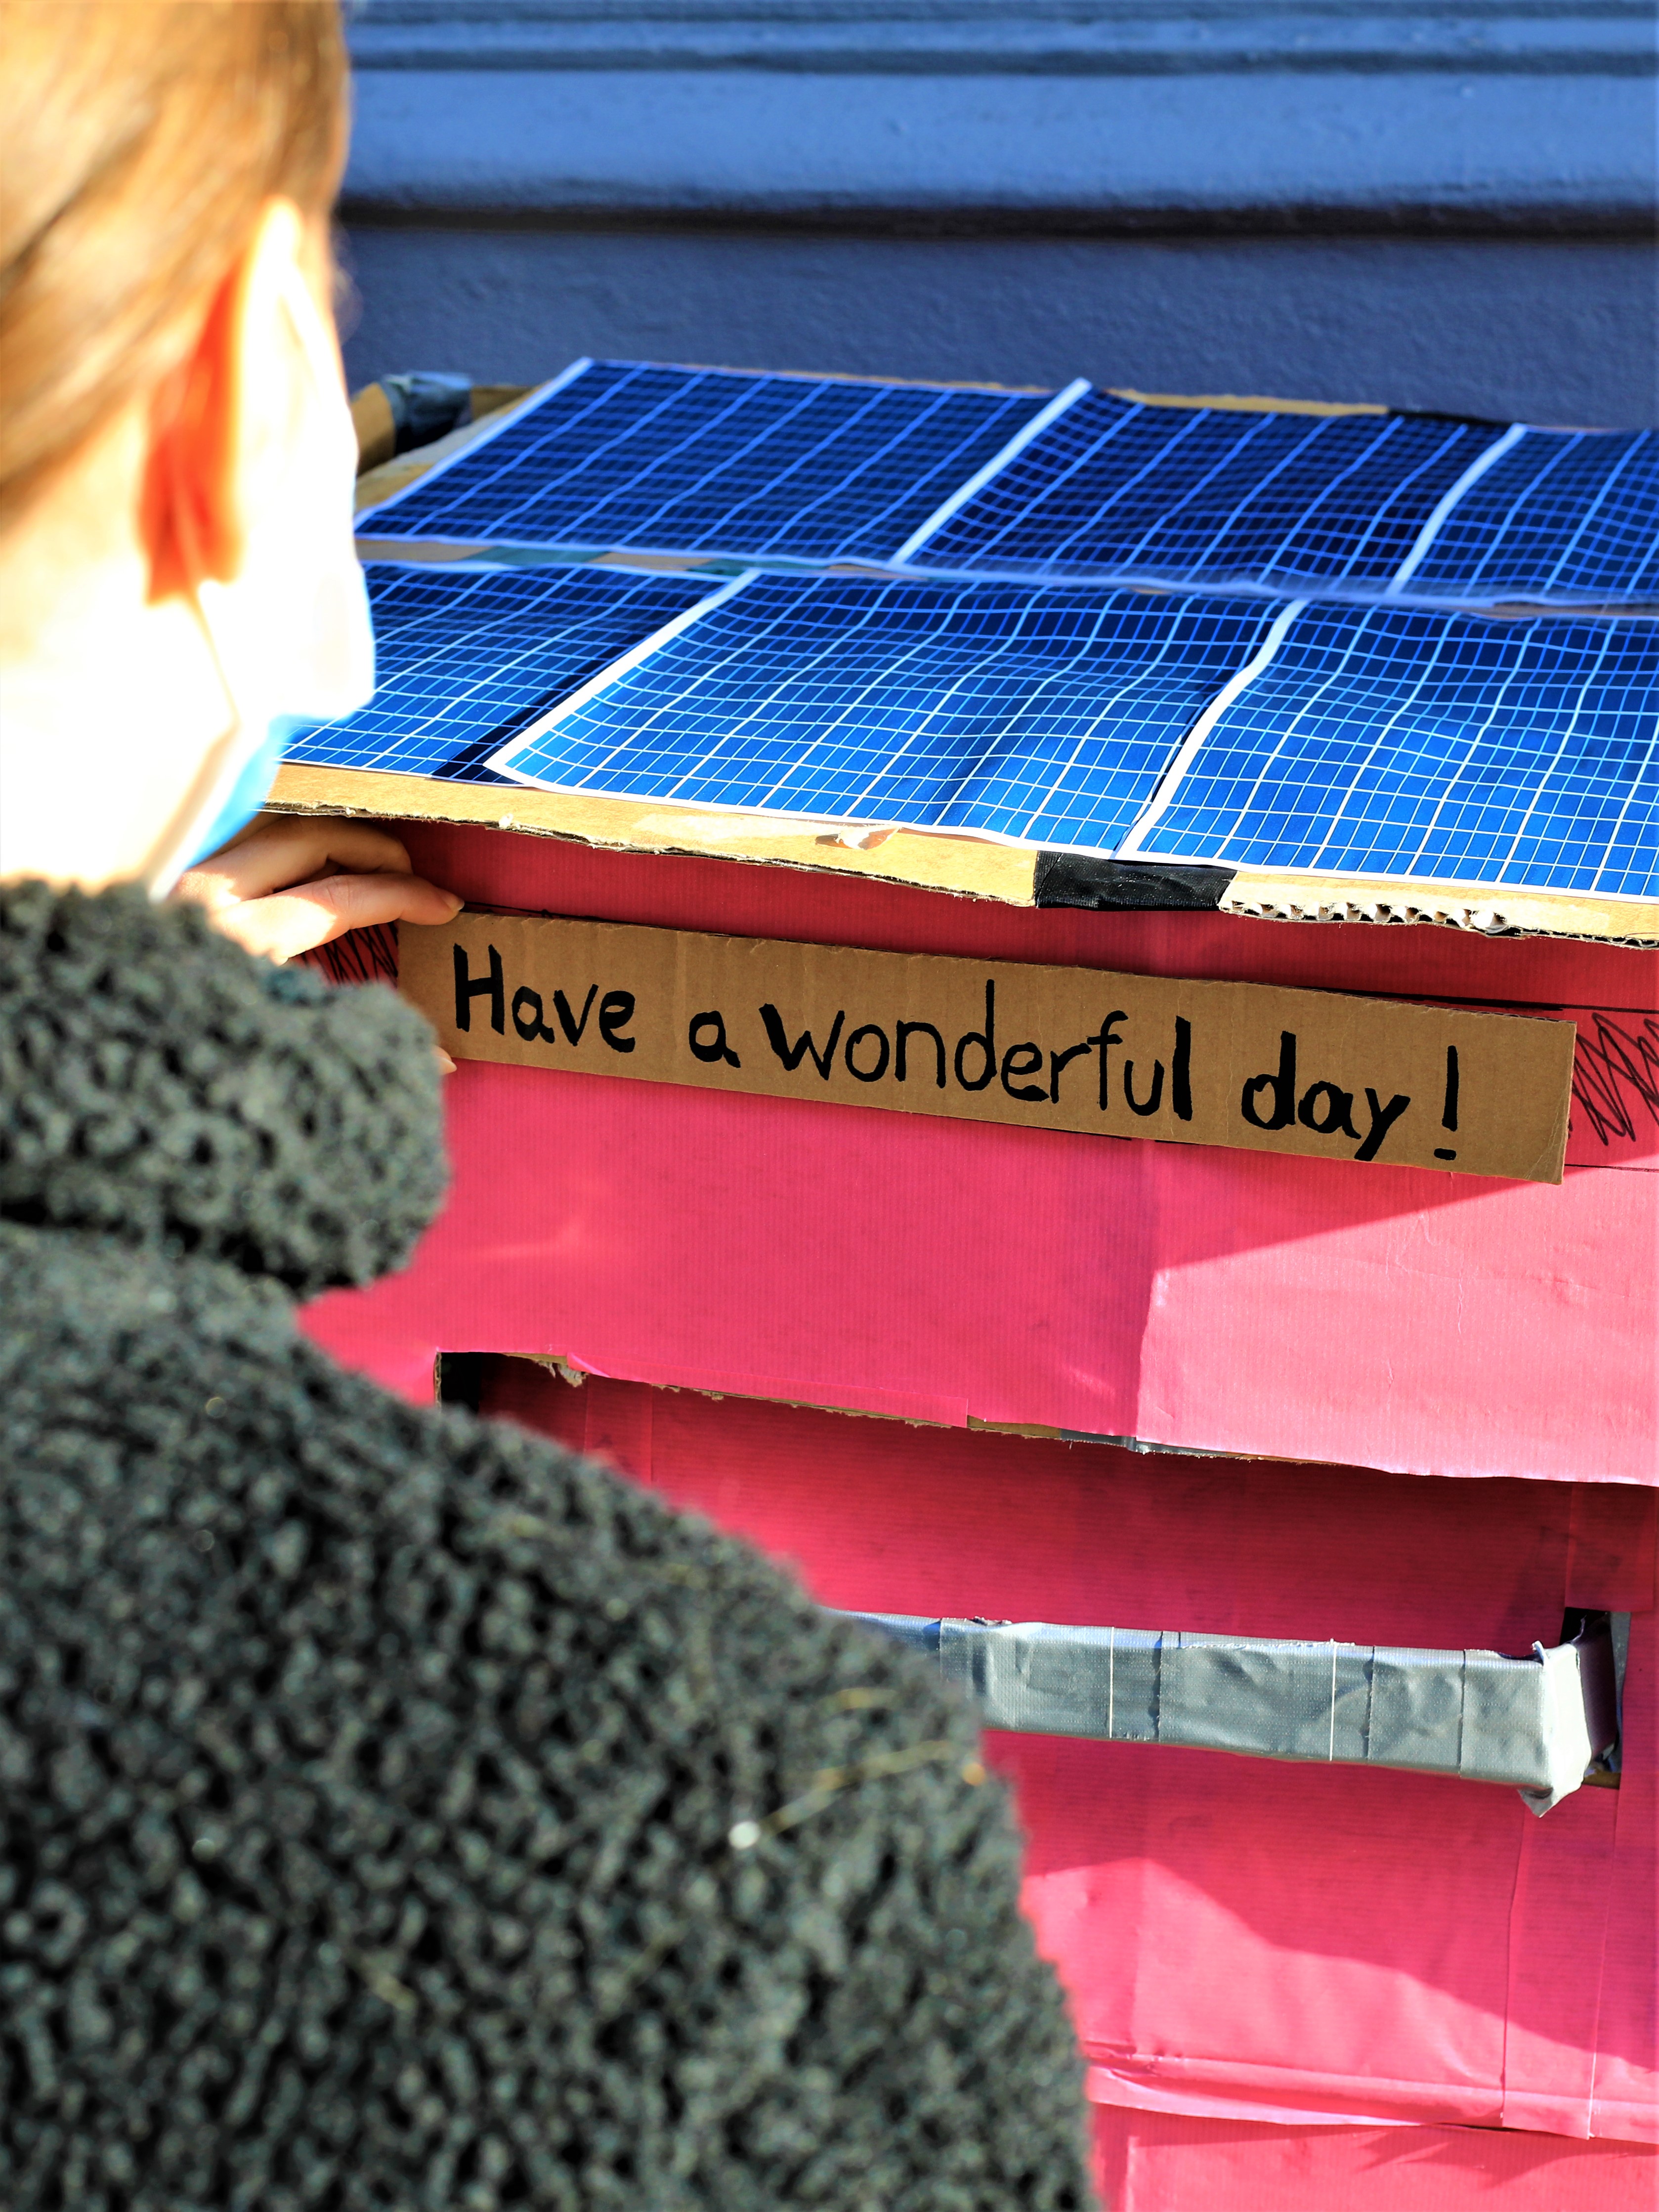 Have a wonderful day!